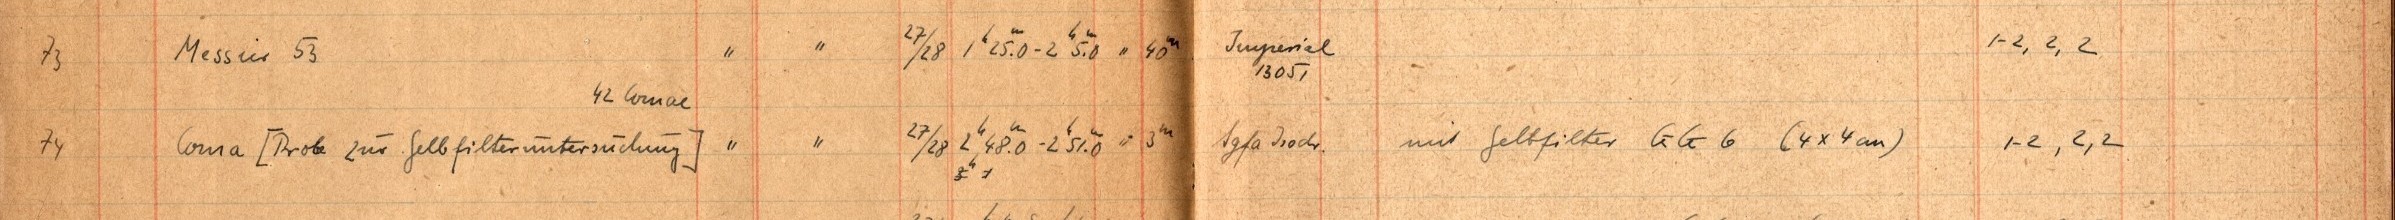 73 Messier 53 " " 27/28 1ʰ25.0ᵐ-2ʰ5.0ᵐ " 40ᵐ Imperial 1-2, 2, 2
13051
42 Comae
74 Coma [Probe zur Gelbfilteruntersuchung] " " 27/28 2ʰ48.0ᵐ-2ʰ51.0ᵐ " 3ᵐ Agfa Isochr. mit Gelbfilter GG 6 (4×4 cm) 1-2, 2, 2